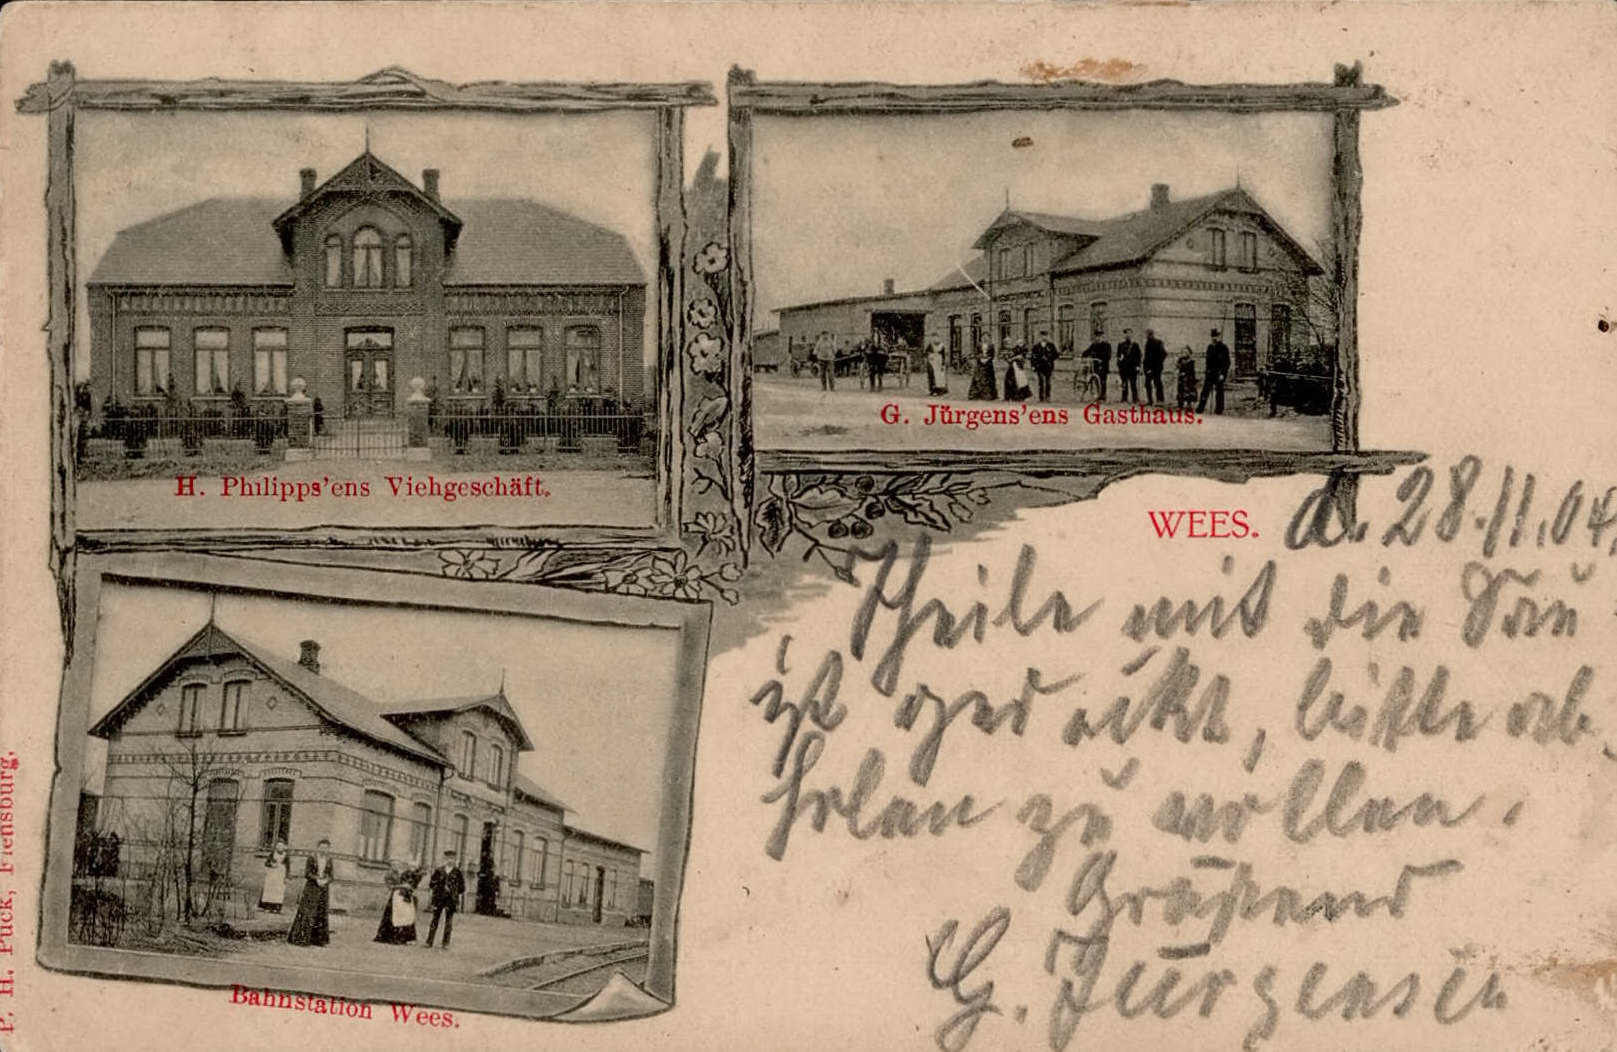 H. Philipps'ens Viehgeschäft.
G. Jürgens'ens Gasthaus.
WEES.
d. 28./11.04.
Theile mit die Sau
ist gedeckt, bitte ab-
holen zu wollen.
Grüßend
G. Jürgensen
Bahnstation Wees.
P. H. Puck, Flensburg.